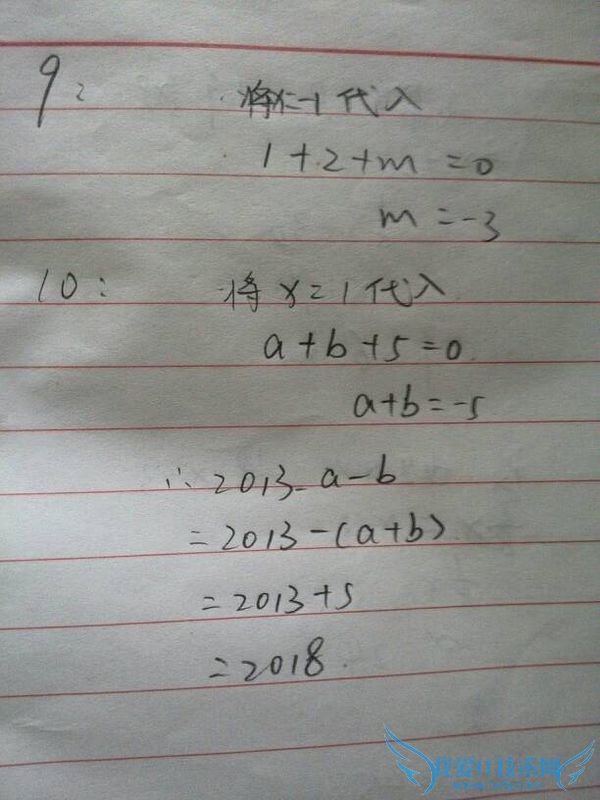 9:
将x=-1代入
1+2+m=0
m=-3
10:
将x=1代入
a+b+5=0
a+b=-5
∴2013-a-b
=2013-(a+b)
=2013+5
=2018.